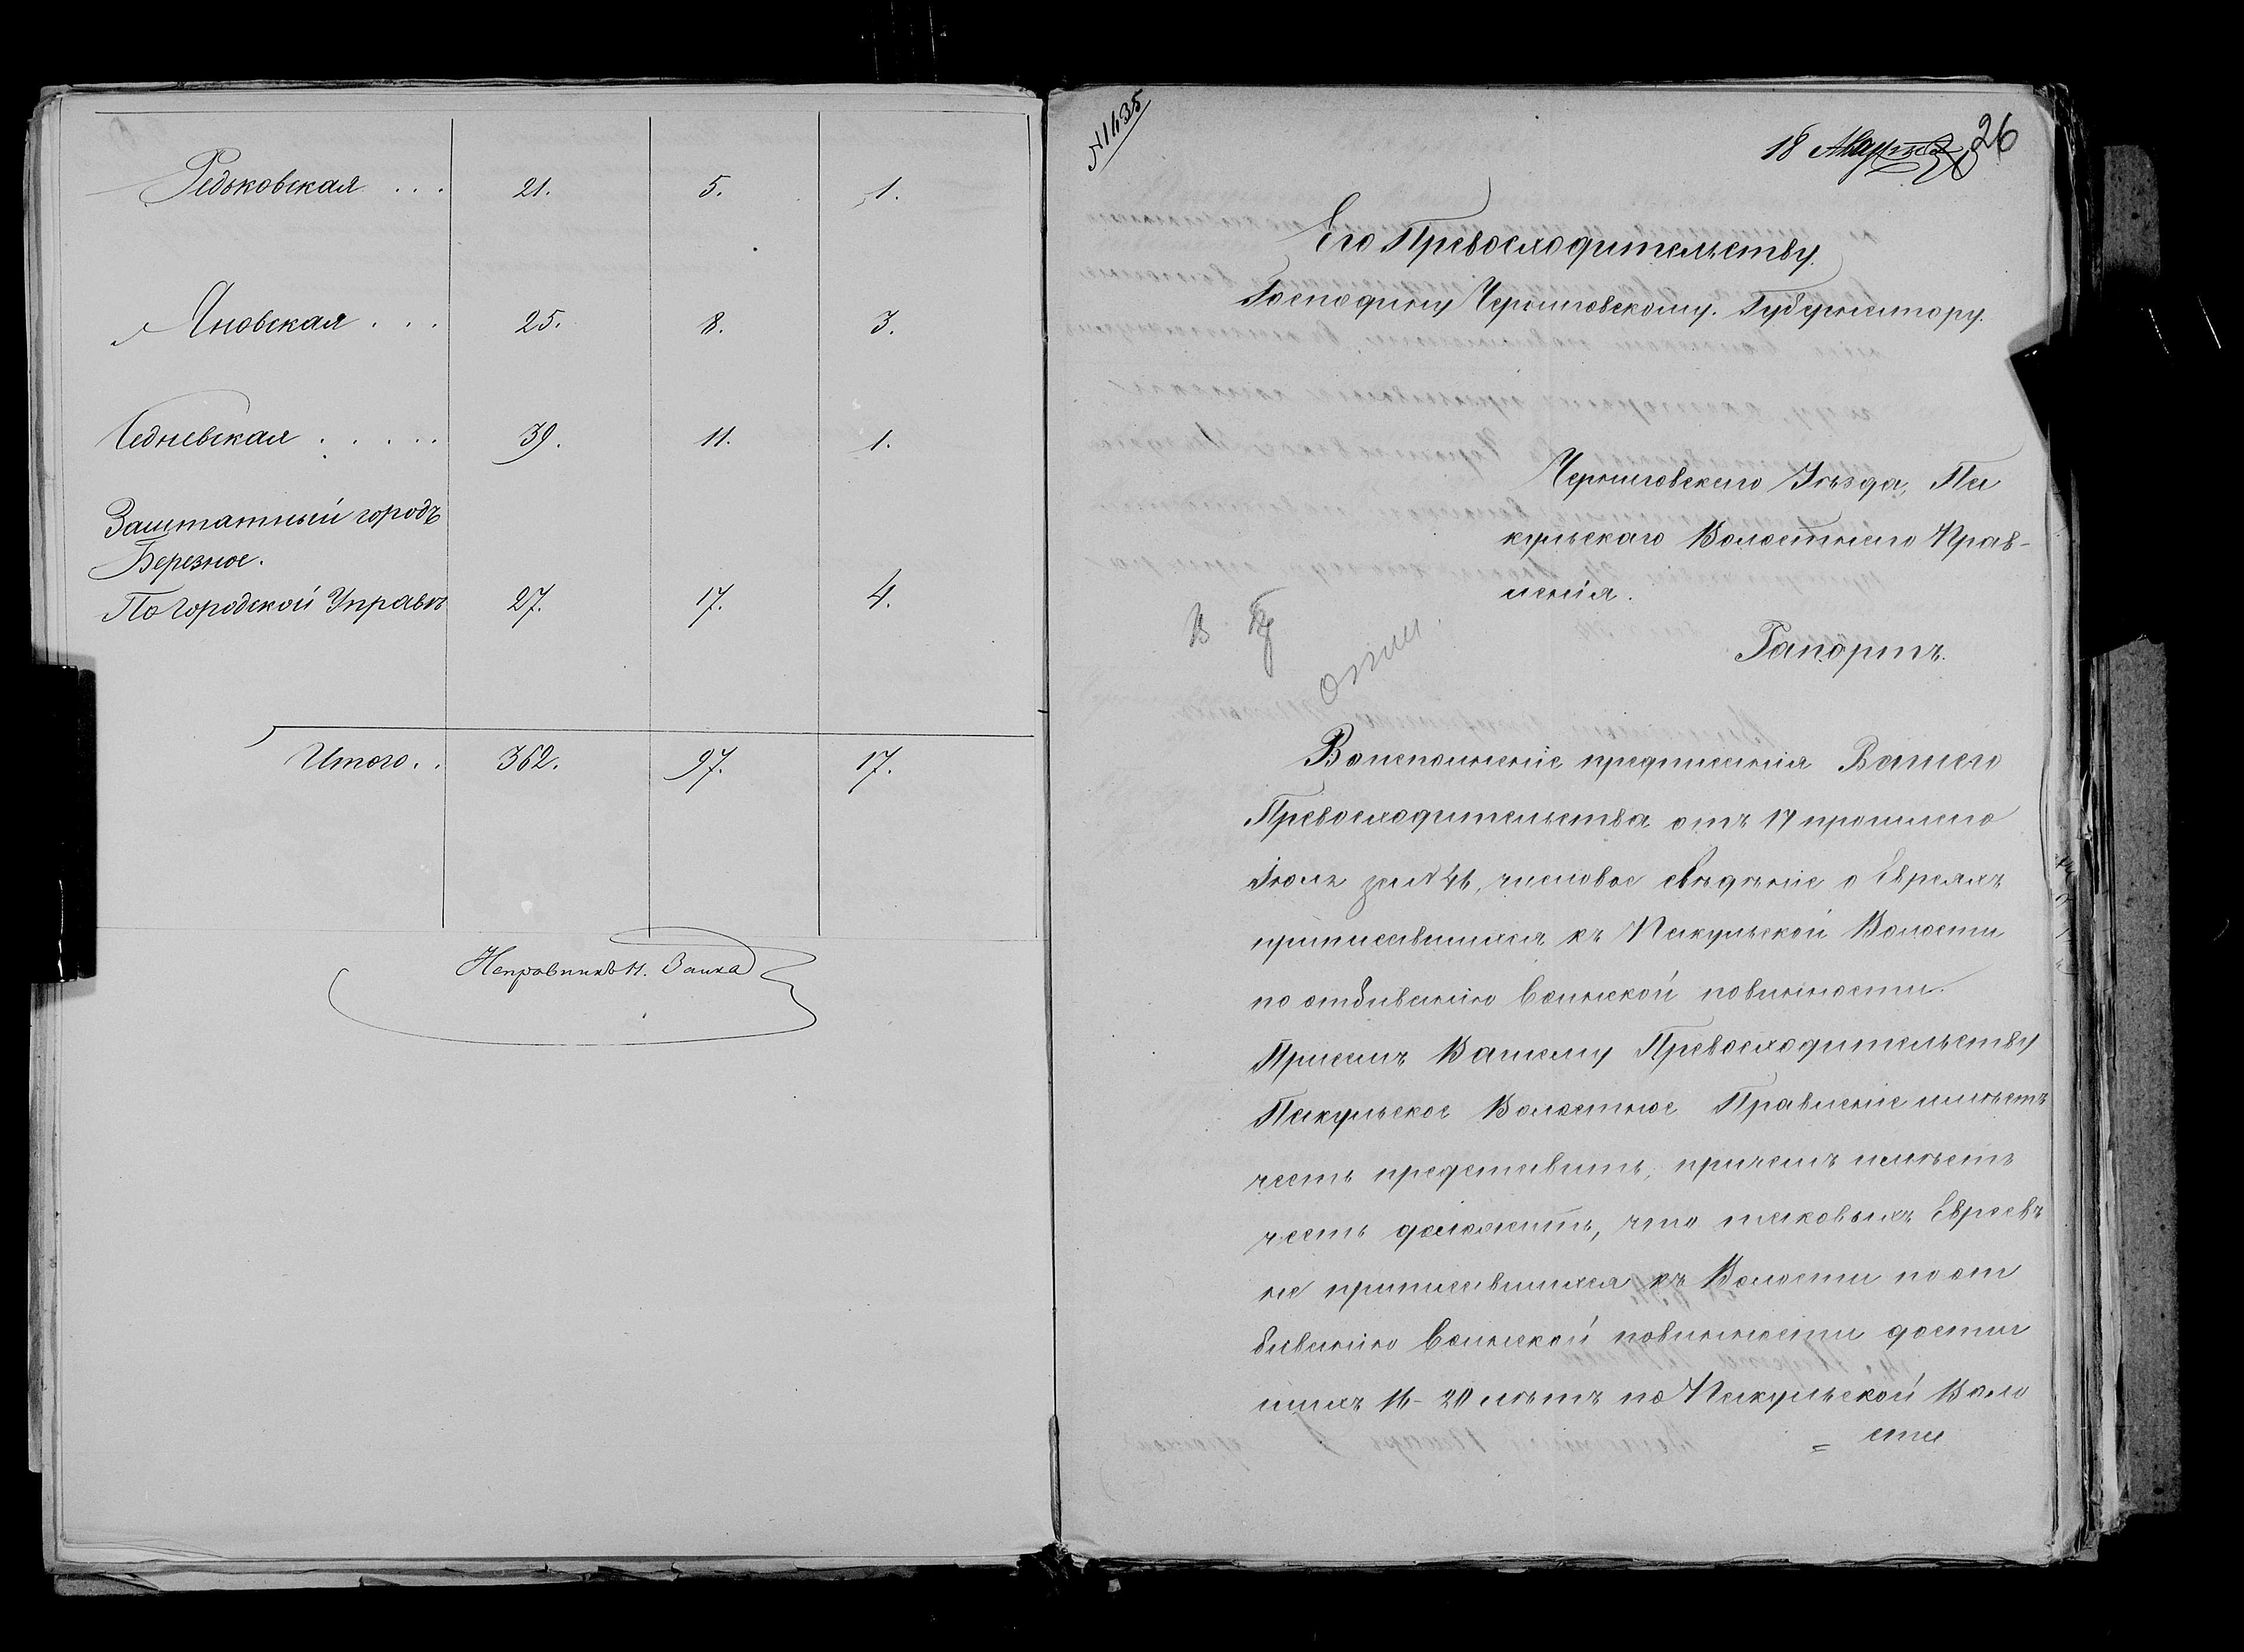 Редьковская . . . 21. 5. 1.
Яновская . . . 25. 8. 3.
Седневская . . . . . 39. 11. 1.
Заштатный городъ
Березное.
По Городской Управѣ 27. 17. 4.
Итого. . 362. 97. 17.
Исправникъ
№1435
18 Марта
26
Его Превосходительству
Господину Черниговскому Губернатору.
Черниговскаго Уѣзда, Па
кульскаго Волостного Прав-
ленія.
Рапортъ.
Воисполненіе предписанія Вашего
Превосходительства отъ 17 прошлаго
за №46, числовое свѣдѣніе о Евреяхъ
приписавшихся къ Пакульской Волости
по отбыванію Воинской повинности.
При семъ Вашему Превосходительству
Пакульское Волостное Правленіе имѣетъ
честь представить, причемъ имѣетъ
честь доложить, что таковыхъ Евреевъ
не приписавшихся къ Волости по от
быванію Воинской повинности достиг
шихъ 16-20 лѣтъ по Пакульской Воло
сти